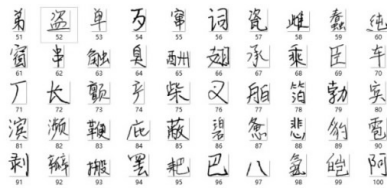 弟 盗 单 歹 窜 词 瓷 雌 蠢 纯
51 52 53 54 55 56 57 58 59 60
宿 串 触 臭 酬 翅 承 乘 臣 车
61 62 63 64 65 66 67 68 69 70
厂 长 颤 辛 柴 叉 舶 箔 勃 实
71 72 73 74 75 76 77 78 79 80
滨 濒 鞭 庇 蔽 碧 惫 悲 豹 雹
81 82 83 84 85 86 87 88 89 90
剥 辩 搬 罢 耙 巴 八 氨 皑 阿
91 92 93 94 95 96 97 98 99 100